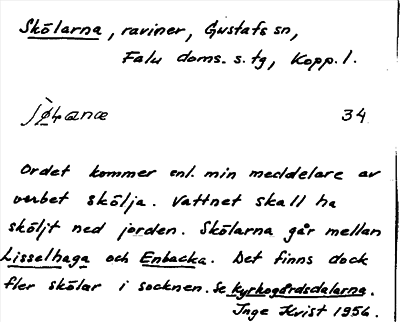 Skölarna, raviner, Gustafs sn,
Falu doms. s. tg, Kopp. l.
34
Ordet kommer enl. min meddelare av
verbet skölja. Vattnet skall ha
sköljt ned jorden. Skölarna går mellan
Lisselhaga och Enbacka. Det finns dock
fler skölar i socknen. Se kyrkogårdsdalarna.
Inge Kvist 1954.